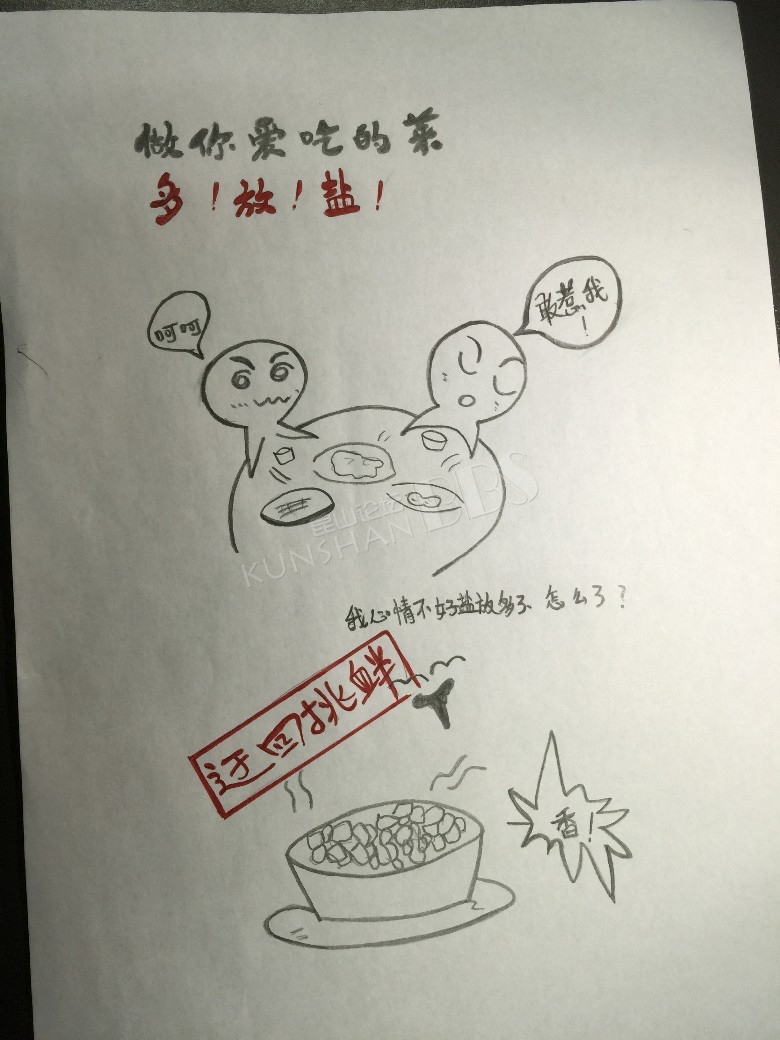 做你爱吃的菜
多！放！盐！
呵呵
敢惹我！
昆山论坛 BBS
KUNSHAN
我心情不好盐放多了 怎么了？
迂回挑衅
香！